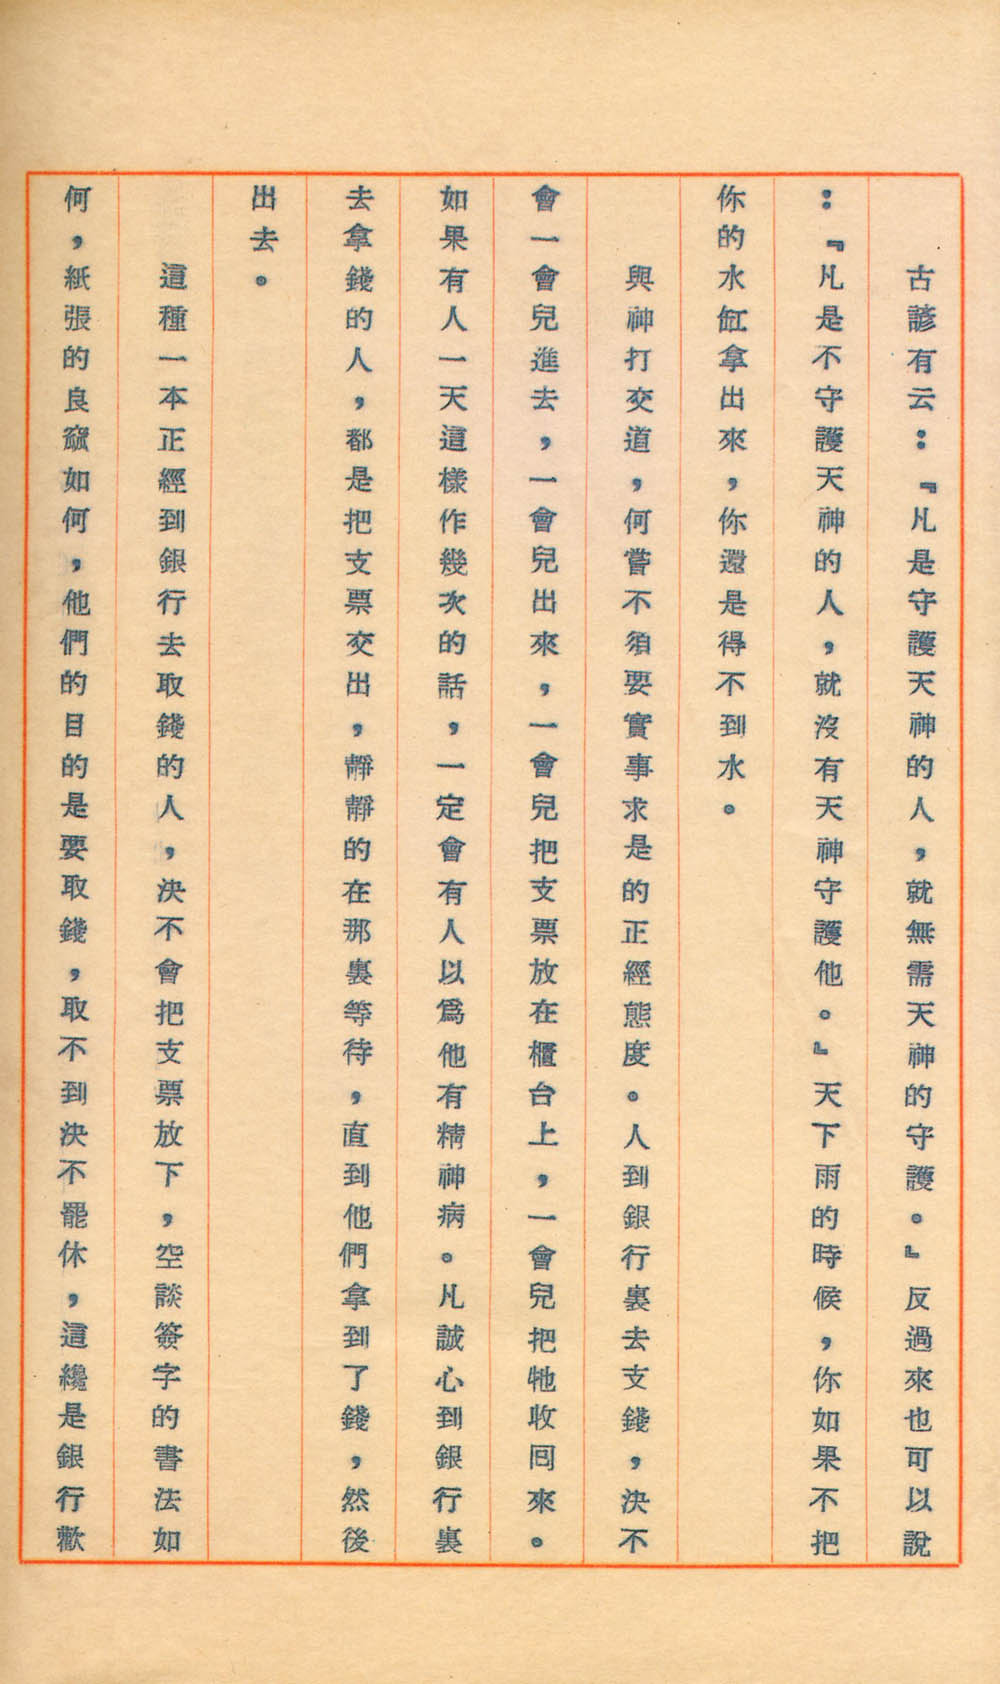 古諺有云：『凡是守護天神的人，就無需天神的守護。』反過來也可以說
：『凡是不守護天神的人，就沒有天神守護他。』天下雨的時候，你如果不把
你的水缸拿出來，你還是得不到水。
與神打交道，何嘗不須要實事求是的正經態度。人到銀行裏去支錢，決不
會一會兒進去，一會兒出來，一會兒把支票放在櫃台上，一會兒把牠收回來。
如果有人一天這樣作幾次的話，一定會有人以爲他有精神病。凡誠心到銀行裏
去拿錢的人，都是把支票交出，靜靜的在那裏等待，直到他們拿到了錢，然後
出去。
這種一本正經到銀行去取錢的人，決不會把支票放下，空談簽字的書法如
何，紙張的良窳如何，他們的目的是要取錢，取不到決不罷休，這纔是銀行歡